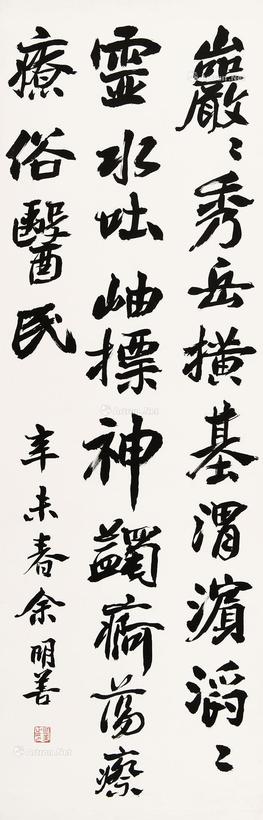 巖〻秀岳橫基渭濱滔〻
靈水吐岫摽神蠲痾蕩瘵
療俗醫民
辛未春余明善
Artron.Net